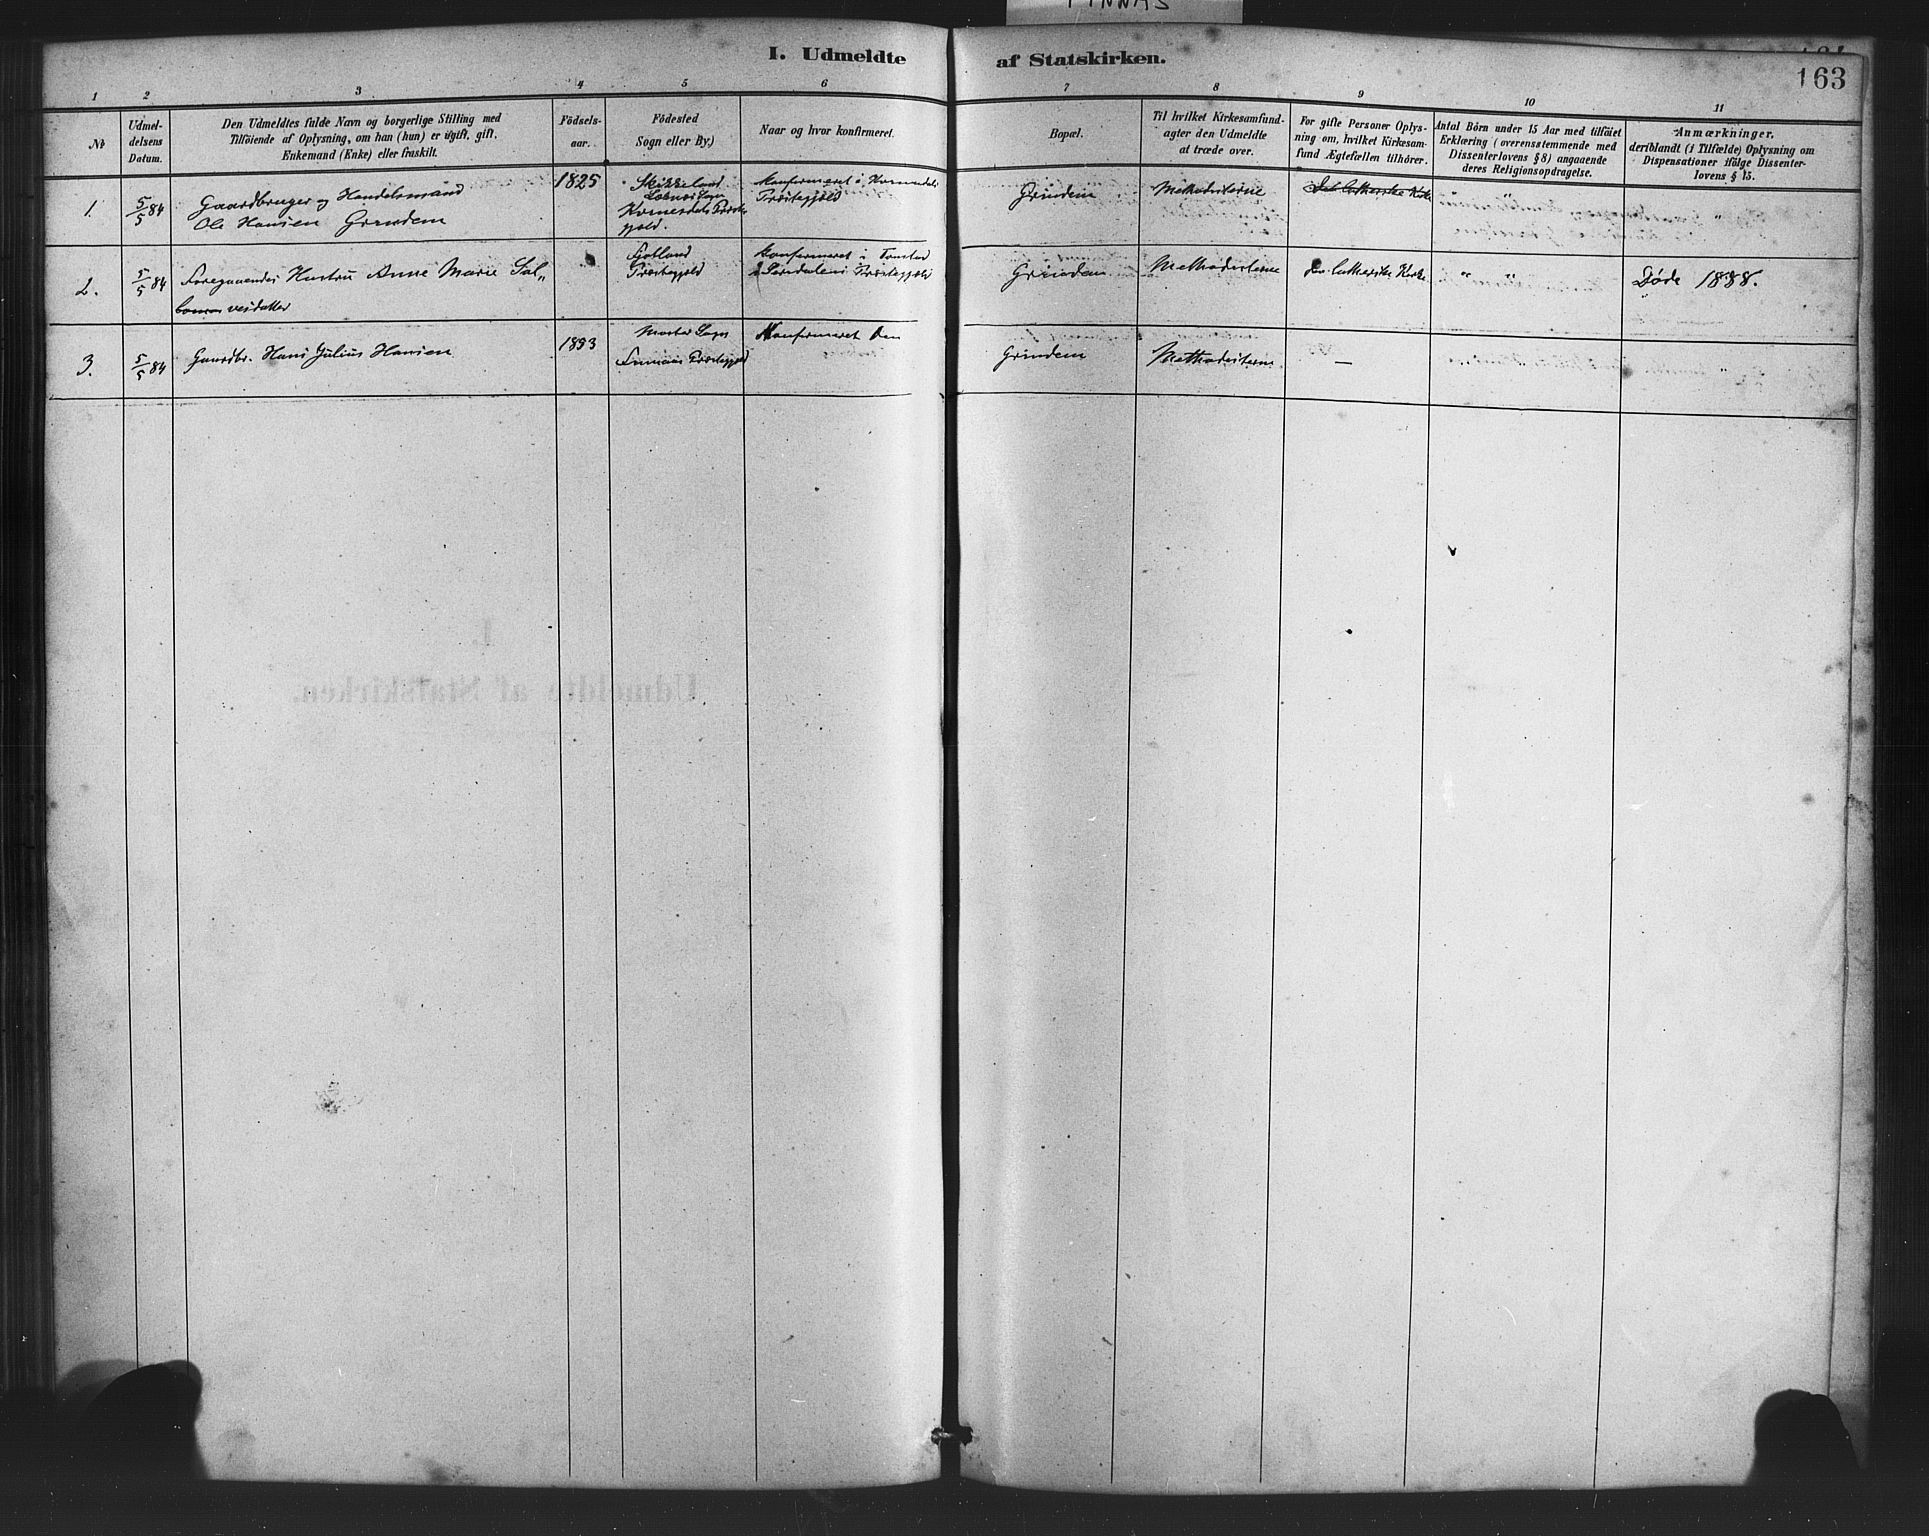 FINNÅS
I. Udmeldte af Statskirken.
163
1 2 3 4 5 6 7 8 9 10 11
No
Udmel-
delsens
Datum.
Den Udmeldtes fulde Navn og borgerlige Stilling med
Tilföiende af Oplysning, om han (hun) er ugift, gift,
Enkemand (Enke) eller fraskilt.
Födsels-
aar.
Födested
Sogn eller By.)
Naar og hvor konfirmeret.
Bopæl.
Til hvilket Kirkesamfund-
agter den Udmeldte
at træde over.
For gifte Personer Oplys-
ning om, hvilket Kirkesam-
fund Ægtefællen tilhörer.
Antal Börn under 15 Aar med tilföiet
Erklæring (overensstemmende med
Dissenterlovens § 8) angaaende
deres Religionsopdragelse.
Anmærkninger,
deriblandt (i Tilfælde) Oplysning om
Dispensationer ifölge Dissenter-
lovens § 15.
1.
5/5 84
Gaardbruger og Handelsmand
Ole Hansen Grindem
1825
Konfirmeret i
Præstegjeld
Grindem
Methodisterne
Den lutherske Kirke
"
2.
5/5 84
Foregaaendes Hustru Anne Marie Sal„
vesdatter
Fjotland
Præstegjeld
Konfirmeret i Tonstad
i Sirdalens Præstegjeld
Grindem
Methodisterne
Den lutherske Kirke
" "
Døde 1888.
3.
5/5 84
Gaardbr. Hans Julius Hansen
1853
Moster Sogn
Finnaas Præstegjeld
Konfirmeret
Grindem
Methodisterne
—
" "
"